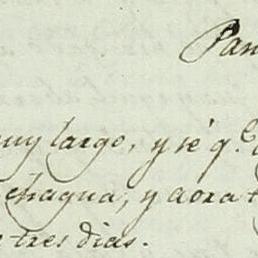 Pan
muy largo, y se q.e
chagua, y aora
tres dias.